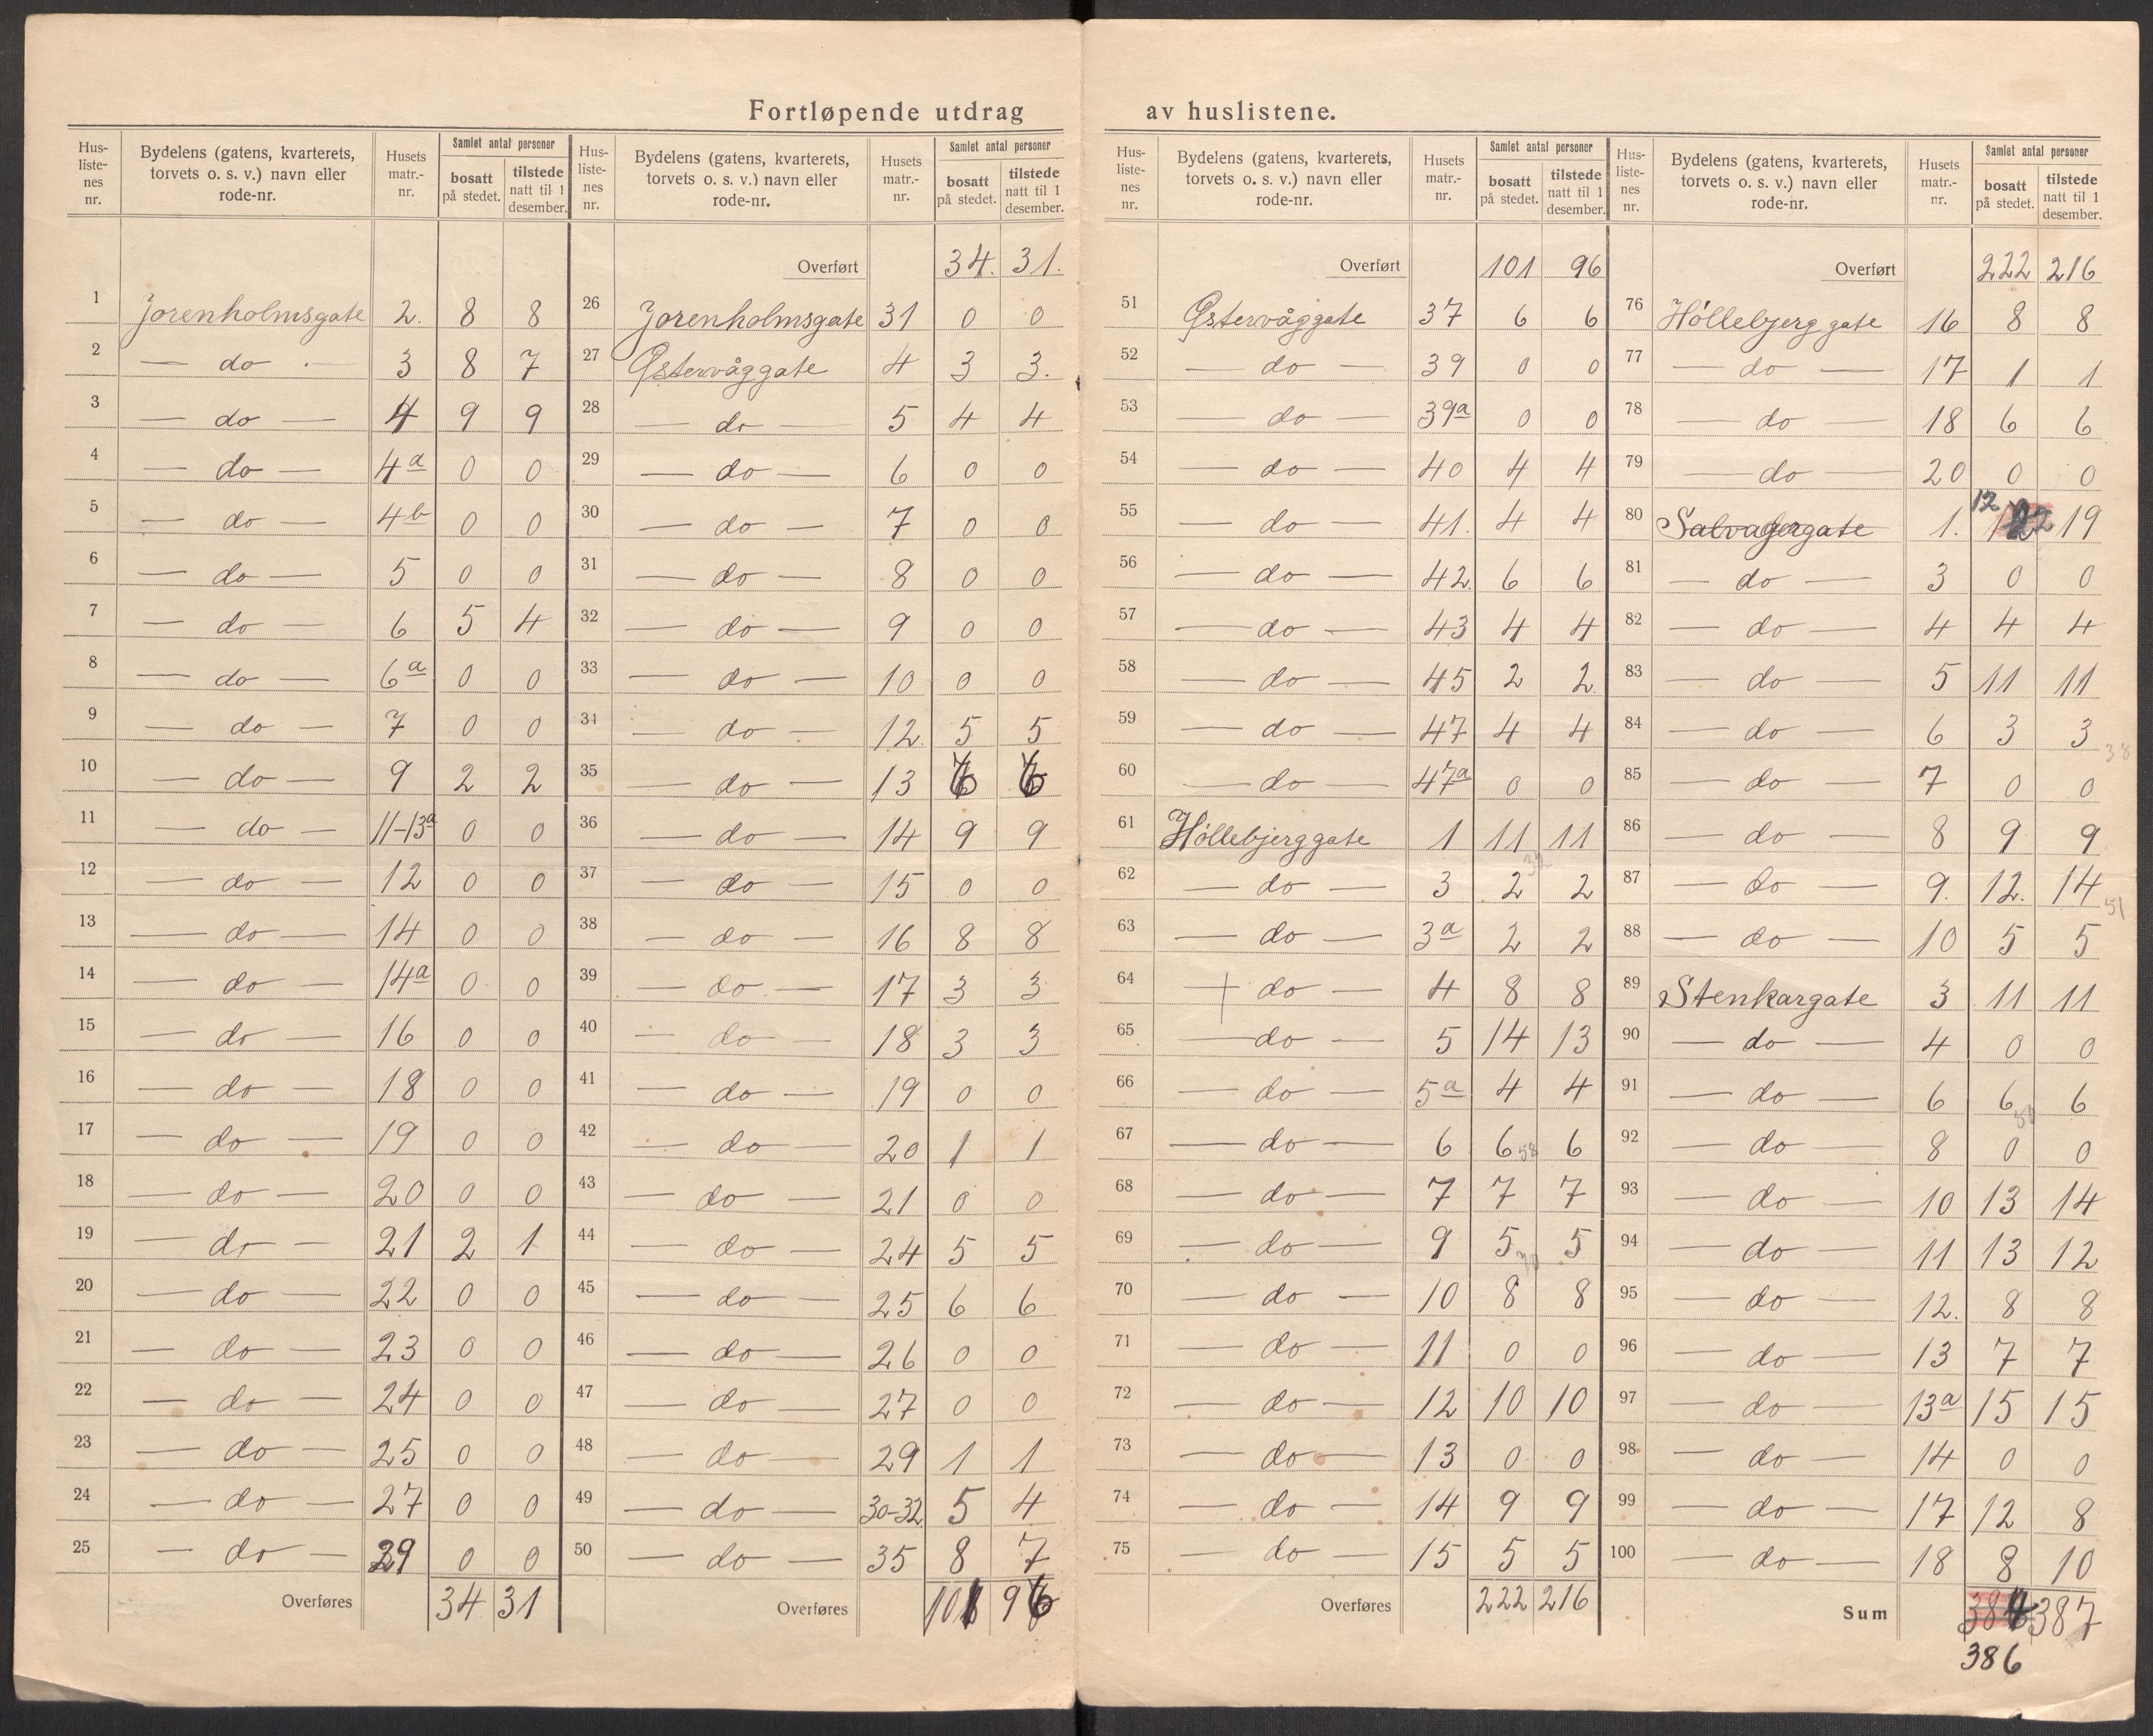 Fortløpende utdrag av huslistene.
Hus-liste-nes nr. | Bydelens (gatens, kvarterets, torvets o. s. v.) navn eller rode-nr. | Husets matr.-nr. | Samlet antal personer bosatt på stedet. | tilstede natt til 1 desember.
1 Jorenholmsgate 2. 8 8
2 — do — 3 8 7
3 — do — 4 9 9
4 — do — 4a 0 0
5 — do — 4b 0 0
6 — do — 5 0 0
7 — do — 6 5 4
8 — do — 6a 0 0
9 — do — 7 0 0
10 — do — 9 2 2
11 — do — 11-13a 0 0
12 — do — 12 0 0
13 — do — 14 0 0
14 — do — 14a 0 0
15 — do — 16 0 0
16 — do — 18 0 0
17 — do — 19 0 0
18 — do — 20 0 0
19 — do — 21 2 1
20 — do — 22 0 0
21 — do — 23 0 0
22 — do — 24 0 0
23 — do — 25 0 0
24 — do — 27 0 0
25 — do — 29 0 0
Overføres 34 31
Hus-liste-nes nr. | Bydelens (gatens, kvarterets, torvets o. s. v.) navn eller rode-nr. | Husets matr.-nr. | Samlet antal personer bosatt på stedet. | tilstede natt til 1 desember.
Overført 34. 31.
26 Jorenholmsgate 31 0 0
27 Østervåggate 4 3 3.
28 — do — 5 4 4
29 — do — 6 0 0
30 — do — 7 0 0
31 — do — 8 0 0
32 — do — 9 0 0
33 — do — 10 0 0
34 — do — 12. 5 5
35 — do — 13 6 6
36 — do — 14 9 9
37 — do — 15 0 0
38 — do — 16 8 8
39 — do — 17 3 3
40 — do — 18 3 3
41 — do — 19 0 0
42 — do — 20 1 1
43 — do — 21 0 0
44 — do — 24 5 5
45 — do — 25 6 6
46 — do — 26 0 0
47 — do — 27 0 0
48 — do — 29 1 1
49 — do — 30-32 5 4
50 — do — 35 8 7
Overføres 101 96
Hus-liste-nes nr. | Bydelens (gatens, kvarterets, torvets o. s. v.) navn eller rode-nr. | Husets matr.-nr. | Samlet antal personer bosatt på stedet. | tilstede natt til 1 desember.
Overført 101 96
51 Østervåggate 37 6 6
52 — do — 39 0 0
53 — do — 39a 0 0
54 — do — 40 4 4
55 — do — 41. 4 4
56 — do — 42. 6 6
57 — do — 43 4 4
58 — do — 45 2 2
59 — do — 47 4 4
60 — do — 47a 0 0
61 Hóllebjerggate 1 11 11
62 — do — 3 2 2
63 — do — 3a 2 2
64 — do — 4 8 8
65 — do — 5 14 13
66 — do — 5a 4 4
67 — do — 6 6 58 6
68 — do — 7 7 7
69 — do — 9 5 5
70 — do — 10 8 8
71 — do — 11 0 0
72 — do — 12 10 10
73 — do — 13 0 0
74 — do — 14 9 9
75 — do — 15 5 5
Overføres 222 216
Hus-liste-nes nr. | Bydelens (gatens, kvarterets, torvets o. s. v.) navn eller rode-nr. | Husets matr.-nr. | Samlet antal personer bosatt på stedet. | tilstede natt til 1 desember.
Overført 222 216
76 Hóllebjerggate 16 8 8
77 — do — 17 1 1
78 — do — 18 6 6
79 — do — 20 0 0
80 Salvagergate 1. 12 19
81 — do — 3 0 0
82 — do — 4 4 4
83 — do — 5 11 11
84 — do — 6 3 3 38
85 — do — 7 0 0
86 — do — 8 9 9
87 — do — 9. 12. 14 51
88 — do — 10 5 5
89 Stenkargate 3 11 11
90 — do — 4 0 0
91 — do — 6 6 6
92 — do — 8 0 0
93 — do — 10 13 14
94 — do — 11 13 12
95 — do — 12. 8 8
96 — do — 13 7 7
97 — do — 13a 15 15
98 — do — 14 0 0
99 — do — 17 12 8
100 — do — 18 8 10
Sum 384 387
386